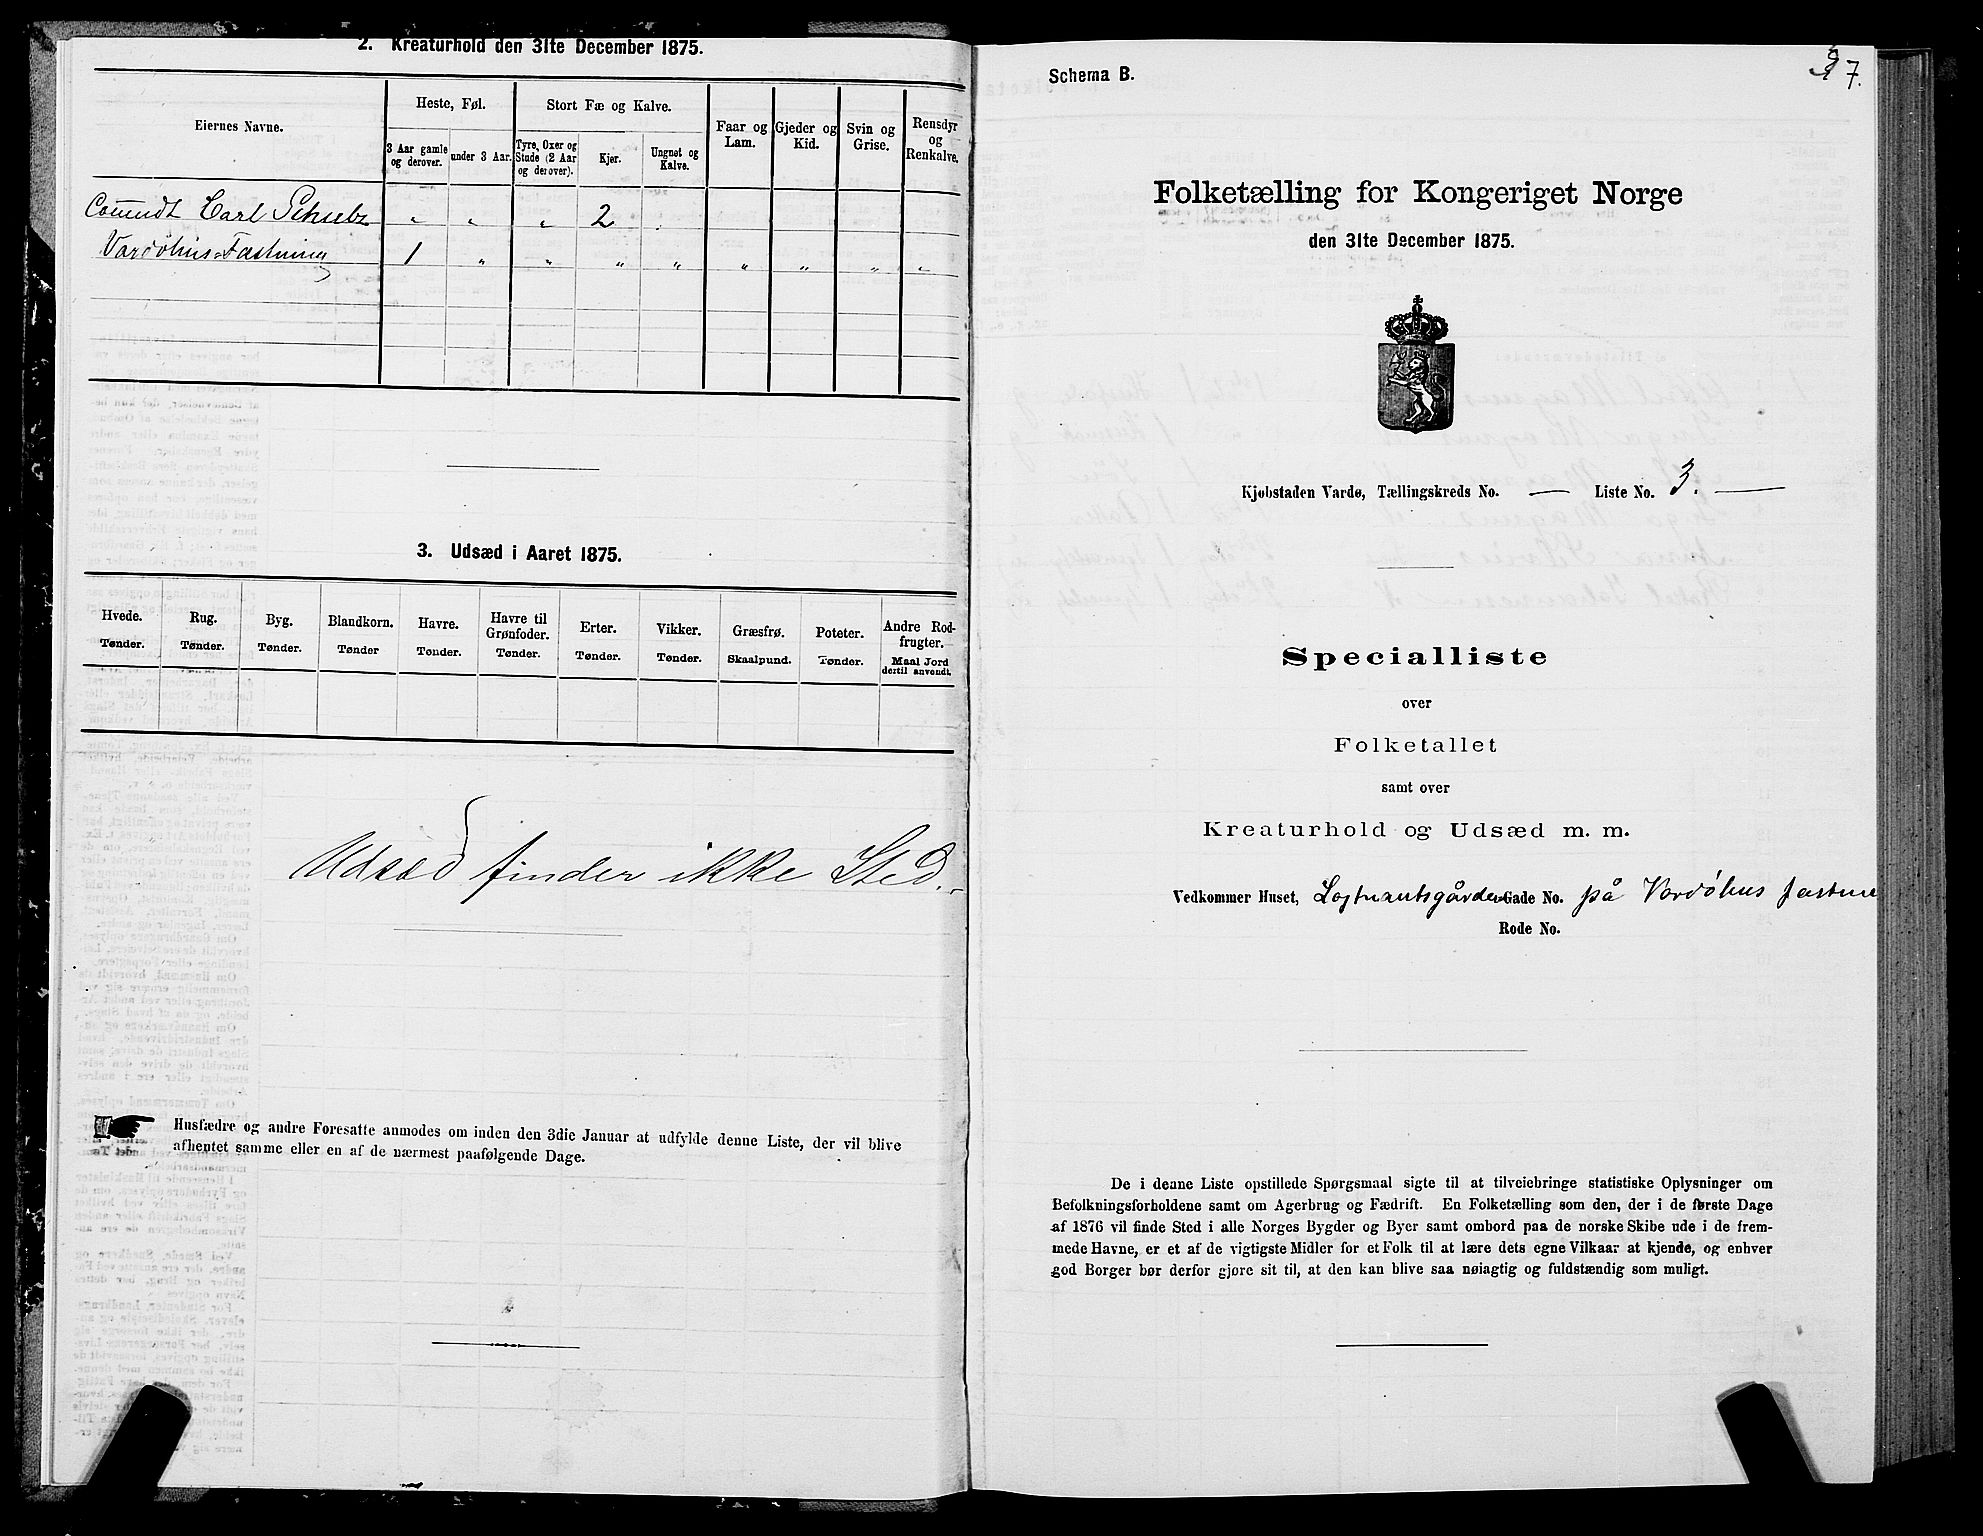 2. Kreaturhold den 31te December 1875.
Eiernes Navne.
Heste, Føl.
Stort Fæ og Kalve.
Faar og
Lam.
Gjeder og
Kid.
Svin og
Grise.
Rensdyr
og
Renkalve.
3 Aar gamle
og derover.
under 3 Aar.
Tyre, Oxer og
Stude (2 Aar
og derover).
Kjer.
Ungnøt og
Kalve.
Carl Schultz " " " 2
Vardøhus Fæstning 1 " " " " " " " "
3. Udsæd i Aaret 1875.
Hvede.
Tønder.
Rug.
Tønder.
Byg.
Tønder.
Blandkorn.
Tønder
Havre.
Tønder.
Havre til
Grønfoder.
Tønder.
Erter.
Tønder.
Vikker.
Tønder.
Græsfrø.
Skaalpund.
Poteter.
Tønder.
Andre Rod-
frugter.
Maal Jord
dertil anvendt.
Udsæd finder ikke Sted.
Husfædre og andre Foresatte anmodes om inden den 3die Januar at udfylde denne Liste, der vil blive
afhentet samme eller en af de nærmest paafølgende Dage.
Schema B.
7.
Folketælling for Kongeriget Norge
den 31te December 1875.
Kjøbstaden Vardø, Tællingskreds No. — Liste No. 3. —
Specialliste
over
Folketallet
samt over
Kreaturhold og Udsæd m. m.
Vedkommer Huset, Løjtnantsgården Gade No. på Vardøhus
Rode No.
De i denne Liste opstillede Spørgsmaal sigte til at tilveiebringe statistiske Oplysninger om
Befolkningsforholdene samt om Agerbrug og Fædrift. En Folketælling som den, der i de første Dage
af 1876 vil finde Sted i alle Norges Bygder og Byer samt ombord paa de norske Skibe ude i de frem-
mede Havne, er et af de vigtigste Midler for et Folk til at lære dets egne Vilkaar at kjende, og enhver
god Borger bør derfor gjøre sit til, at den kan blive saa nøiagtig og fuldstændig som muligt.